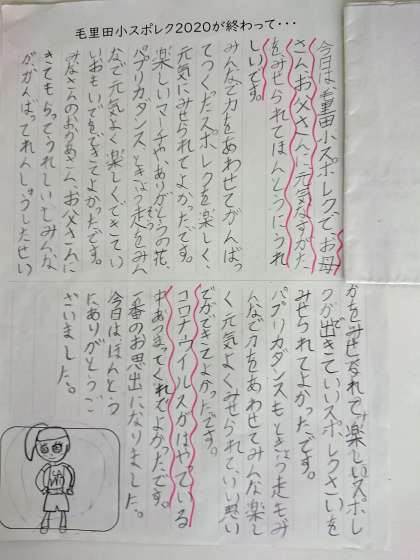 毛里田小スポレク2020が終わって・・・
今日は毛里田小スポレクで、お母
さんお父さんに元気なすがた
をみせられてほんとうにうれ
しいです。
みんなで力をあわせてがんばっ
てつくったスポレクを楽しく、
元気にみせられてよかったです。
楽しいマーチや、ありがとうの花、
パプリカダンス、ときょう走をみん
なで元気よく楽しくできてい
いおもいでをできてよかったです。
みなさんのおかあさん、お父さんに
きてもらってうれしいとみんな
が、がんばってれんしゅうしたせい
かをみせられて、楽しいスポレ
クが出きていいスポレクさいを
みせられてよかったです。
パプリカダンスもときょう走もみ
んなで力をあわせてみんな楽し
く元気よくみせられていい思い
でができてよかったです。
コロナウイルスがはやっている
中あつまってくれてよかったです。
一番のお思出になりました。
今日はほんとう
にありがとうご
ざいました。